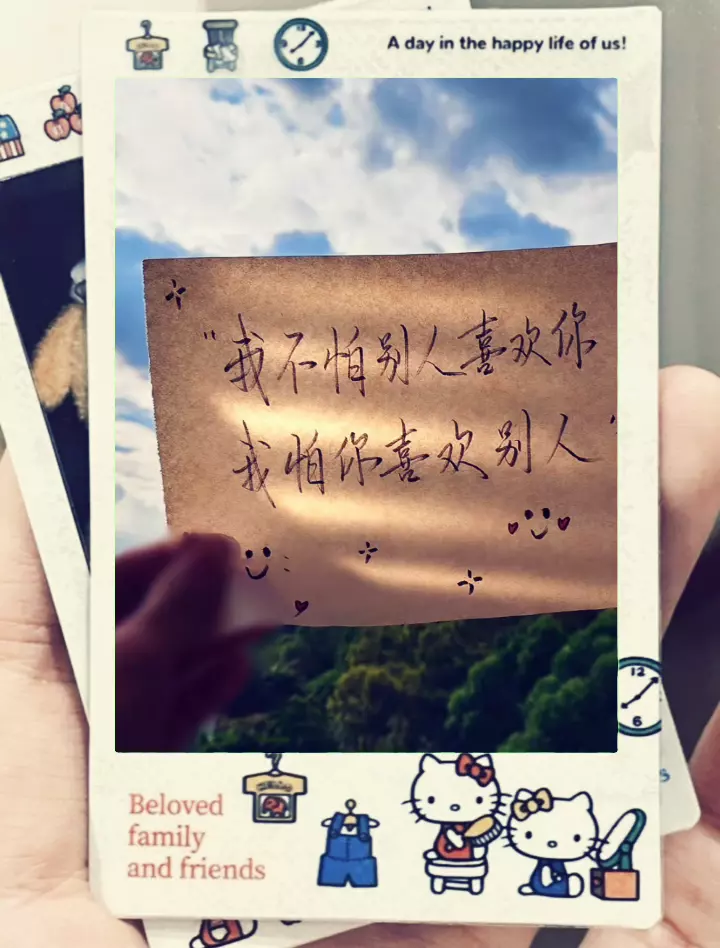 A day in the happy life of us!
"我不怕别人喜欢你
我怕你喜欢别人"
12
6
Beloved
family
and friends